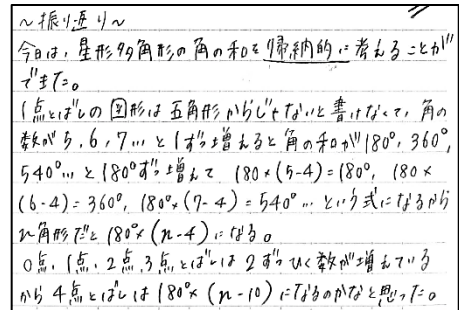 ～振り返り～
今日は、星形多角形の角の和を帰納的に考えることが
できた。
1点とばしの図形は五角形からじゃないと書けなくて、角の
数が5,6,7…と1ずつ増えると角の和が180°,360°,
540°…と180°ずつ増えて 180×(5-4)=180°, 180×
(6-4)=360°, 180°×(7-4)=540°…という式になるから
n角形だと180°×(n-4)になる。
0点,1点,2点,3点とばしは2ずつひく数が増えている
から4点とばしは180°×(n-10)になるのかなと思った。